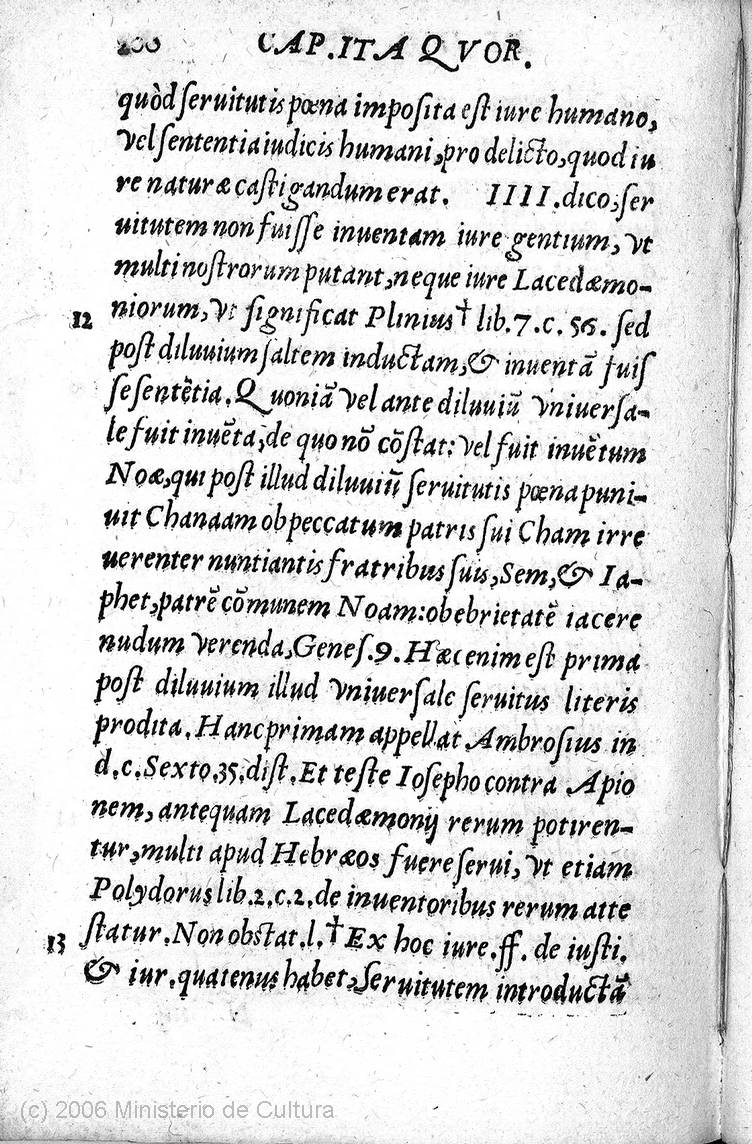 200 CAP.ITA QVOR.
quòd ſeruitutis pœna impoſita eſt iure humano,
vel ſententia iudicis humani, pro delicto, quod iu
re naturæ caſtigandum erat. IIII. dico, ſer
uitutem non fuiſſe inuentam iure gentium, vt
multi noſtrorum putant, neque iure Lacedæmo-
12 niorum, vt ſignificat Plinius† lib. 7. c. 56. ſed
poſt diluuium ſaltem inductam, & inuentã fuiſ
ſe ſentẽtia. Quoniã vel ante diluuiũ vniuerſa-
le fuit inuẽta, de quo nõ cõſtat: vel fuit inuẽtum
Noæ, qui poſt illud diluuiũ ſeruitutis pœna puni-
uit Chanaam ob peccatum patris ſui Cham irre
uerenter nuntiantis fratribus ſuis, Sem, & Ia-
phet, patrẽ cõmunem Noam: ob ebrietatẽ iacere
nudum verenda, Geneſ. 9. Hæc enim eſt prima
poſt diluuium illud vniuerſale ſeruitus literis
prodita. Hanc primam appellat Ambroſius in
d. c. Sexto. 35. diſt. Et teſte Ioſepho contra Apio
nem, antequam Lacedæmonij rerum potiren-
tur, multi apud Hebræos fuere ſerui, vt etiam
Polydorus lib. 2. c. 2. de inuentoribus rerum atte
13 ſtatur. Non obſtat. l. † Ex hoc iure. ff. de iuſti.
& iur. quatenus habet, Seruitutem introductã
(c) 2006 Ministerio de Cultura